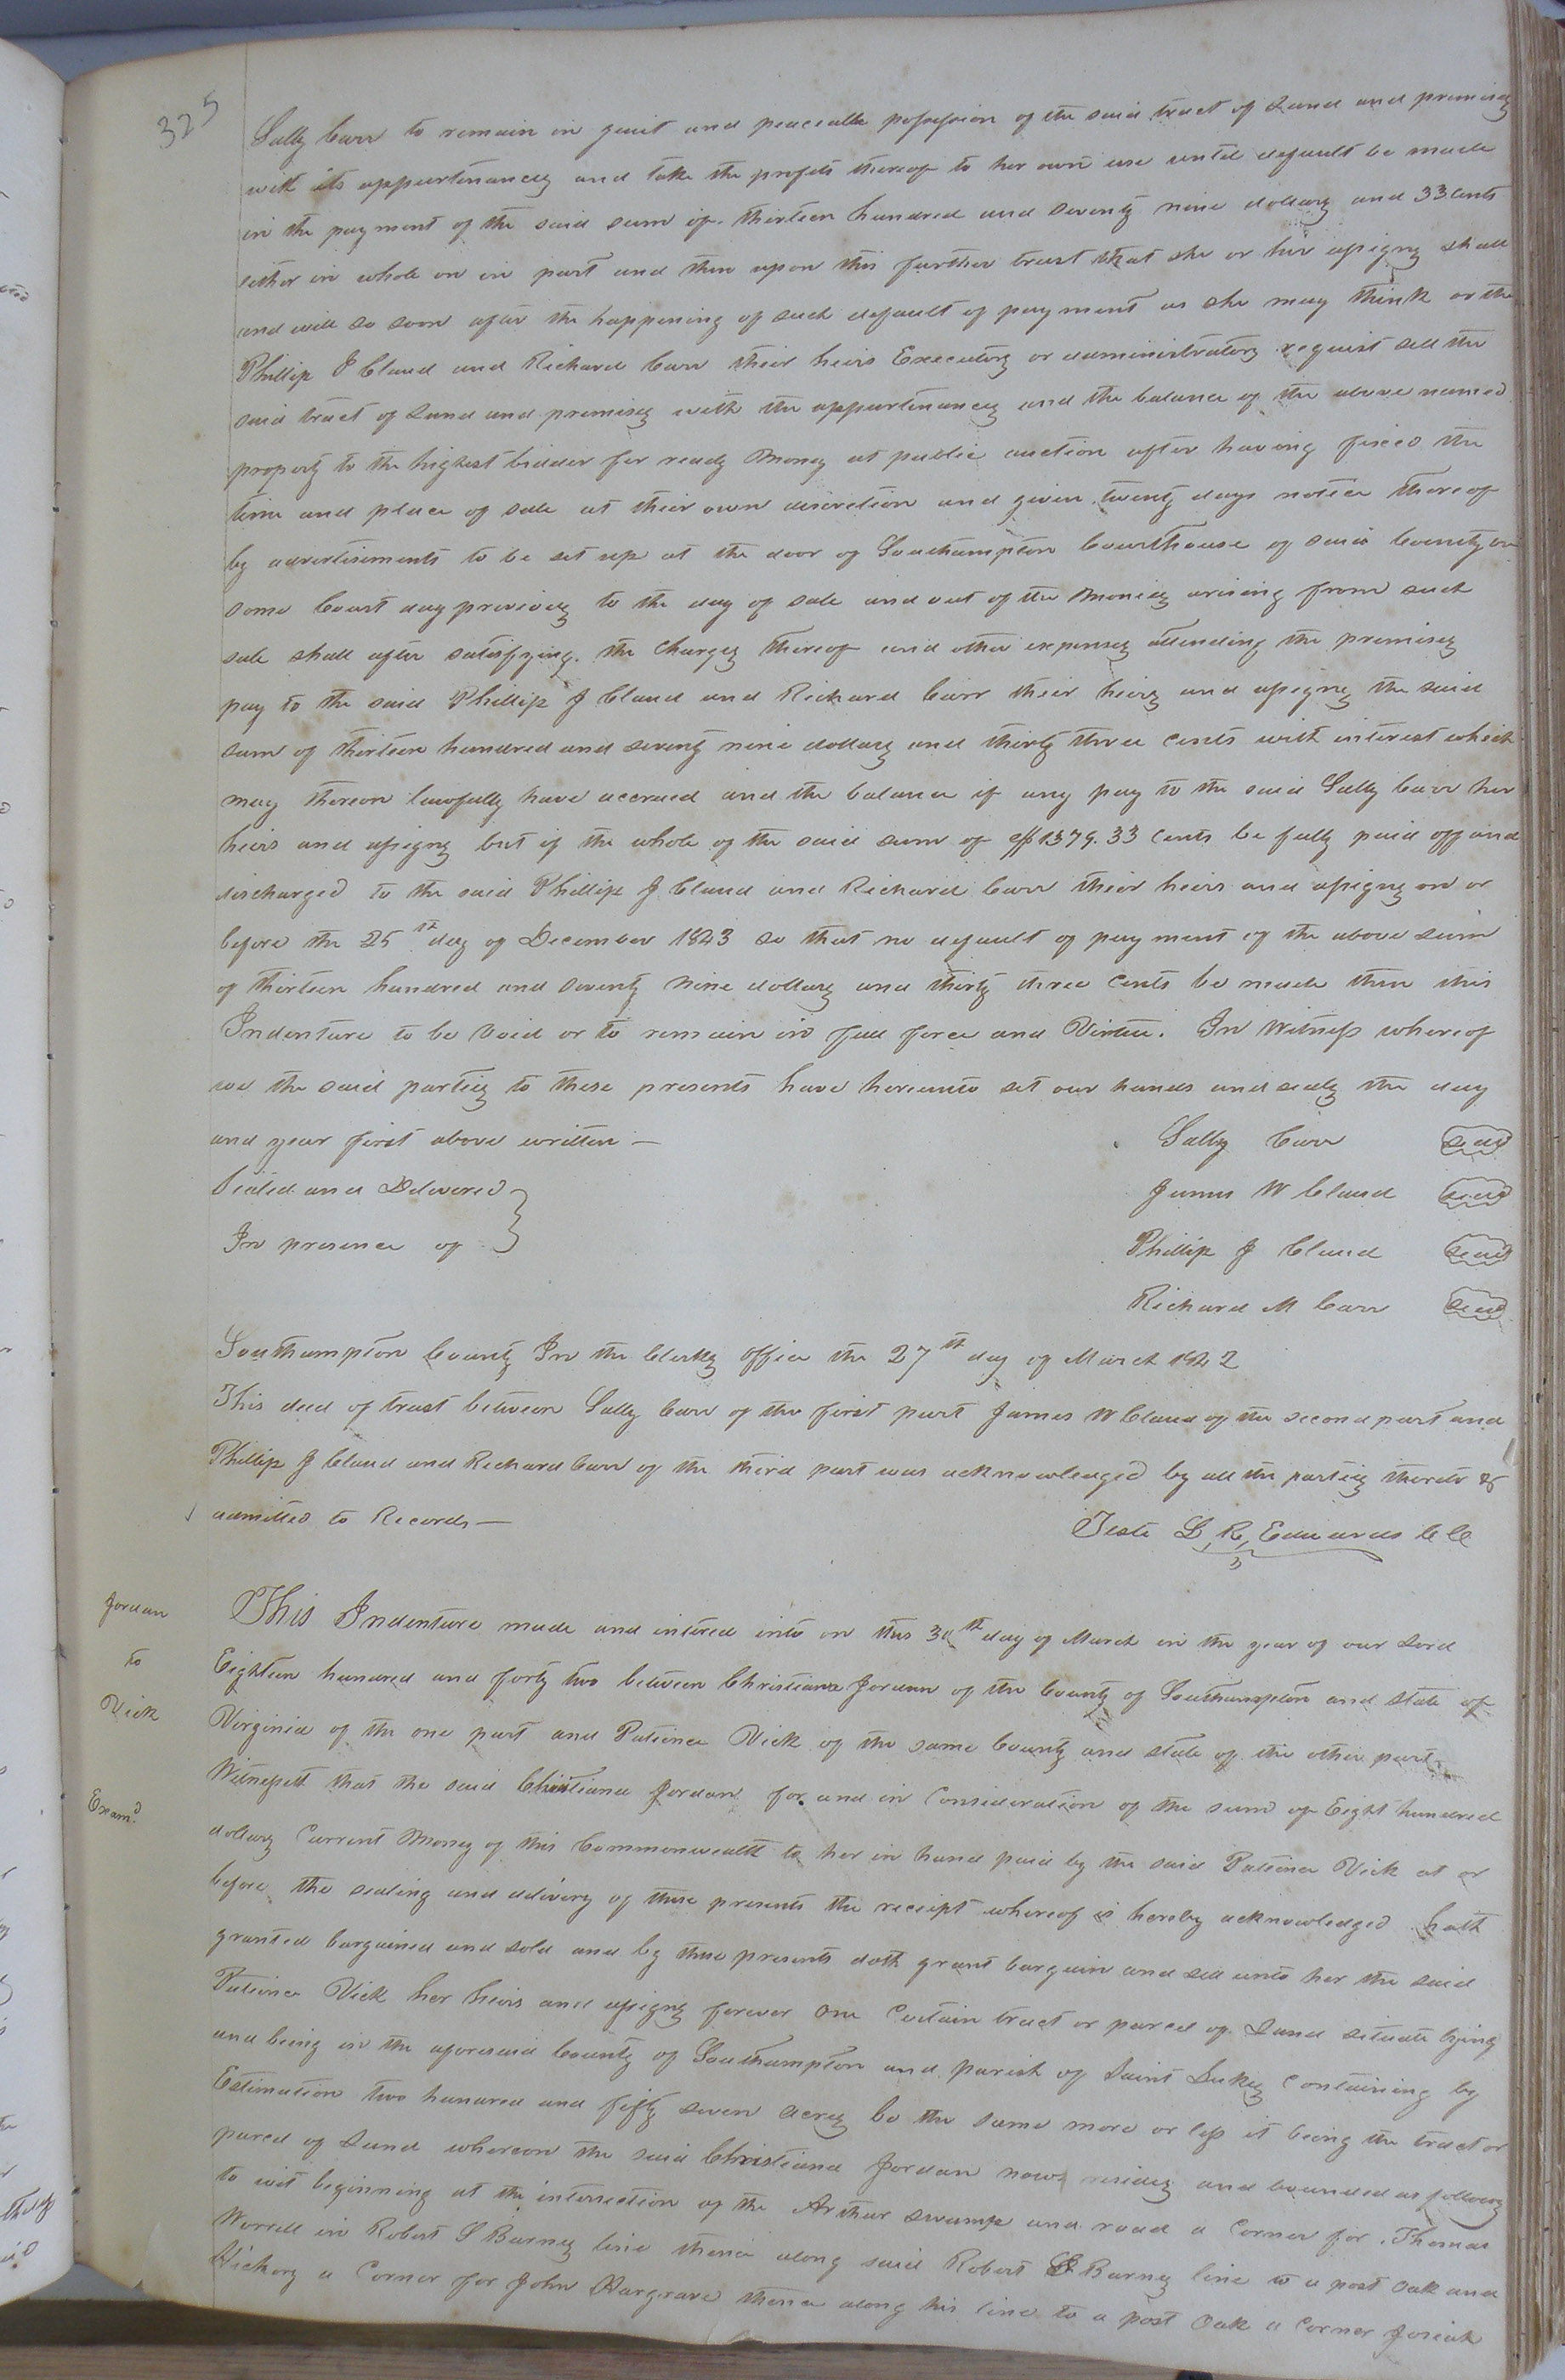 325
Sally Carr to remain in quiet and peaceable possession of the said tract of Land and premises
with its appurtenances and take the profits thereof to her own use until default be made
in the payment of the said sum of thirteen hundred and seventy nine dollars and 33 Cents
either in whole or in part and then upon this further trust that she or her assigns shall
and will so soon after the happening of such default of payment as she may think or the
Phillip J Claud and Richard Carr their heirs Executors or administrators request sell the
said tract of Land and premises with the appurtenances and the balance of the above named
property to the highest bidder for ready Money at public auction after having fixed the
time and place of sale at their own discretion and given twenty days notice thereof
by advertisements to be set up at the door of Southampton Courthouse of said County on
some Court day previous to the day of sale and out of the Monies arising from such
sale shall after satisfying the Charges thereof and other expenses attending the premises
pay to the said Phillip J Claud and Richard Carr their heirs and assigns the said
sum of thirteen hundred and seventy nine dollars and thirty three cents with interest which
may thereon lawfully have accrued and the balance if any pay to the said Sally Carr her
heirs and assigns but if the whole of the said sum of $1379.33 Cents be fully paid off and
discharged to the said Phillip J Claud and Richard Carr their heirs and assigns on or
before the 25th day of December 1843 so that no default of payment of the above sum
of thirteen hundred and seventy nine dollars and thirty three Cents be made then this
Indenture to be Void or to remain in full force and Virtue. In Witness whereof
we the said parties to these presents have hereunto set our hands and seals the day
and year first above written — Sally Carr seal
Sealed and Delivered James W Claud seal
In presence of Phillip J Claud seal
Richard M Carr seal
Southampton County In the Clerks office the 27th day of March 1842
This deed of trust between Sally Carr of the first part James W Claud of the second part and
Phillip J Claud and Richard Carr of the third part was acknowledged by all the parties thereto &
admitted to Records — Teste L R Edwards CC
Jordan
to
Vick
Examd
This Indenture made and intered into on this 30th day of March in the year of our Lord
Eighteen hundred and forty two between Christiana Jordan of the County of Southampton and state of
Virginia of the one part and Patience Vick of the same County and state of the other part
Witnesseth that the said Christiana Jordan for and in Consideration of the sum of Eight hundred
dollars Current Money of this Commonwealth to her in hand paid by the said Patience Vick at or
before the sealing and delivery of these presents the receipt whereof is hereby acknowledged hath
granted bargained and sold and by these presents doth grant bargain and sell unto her the said
Patience Vick her heirs and assigns forever One Certain tract or parcel of Land situate lying
and being in the aforesaid County of Southampton and parish of Saint Lukes Containing by
Estimation two hundred and fifty seven acres be the same more or less it being the tract or
parcel of Land whereon the said Christiana Jordan now resides and bounded as follows
to wit beginning at the intersection of the Arthur swamp and road a Corner for Thomas
Worrell in Robert S Barnes line thence along said Robert S Barnes line to a post Oak and
Hickory a Corner for John Hargrave thence along his line to a post Oak a Corner Josiah